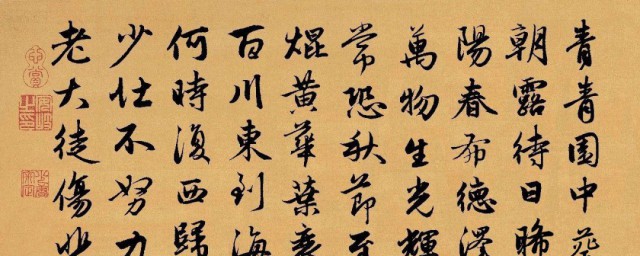 青青園中葵
朝露待日晞
陽春布德澤
萬物生光輝
常恐秋節至
焜黄華葉衰
百川東到海
何時復西歸
少壮不努力
老大徒傷悲